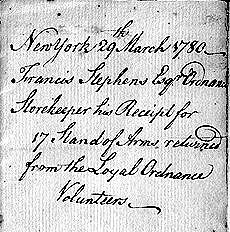 New York 29th March 1780
Francis Stephens Esqr Ordnance
Storekeeper his Receipt for
17 Stand of Arms, returned
from the Loyal Ordnance
Volunteers